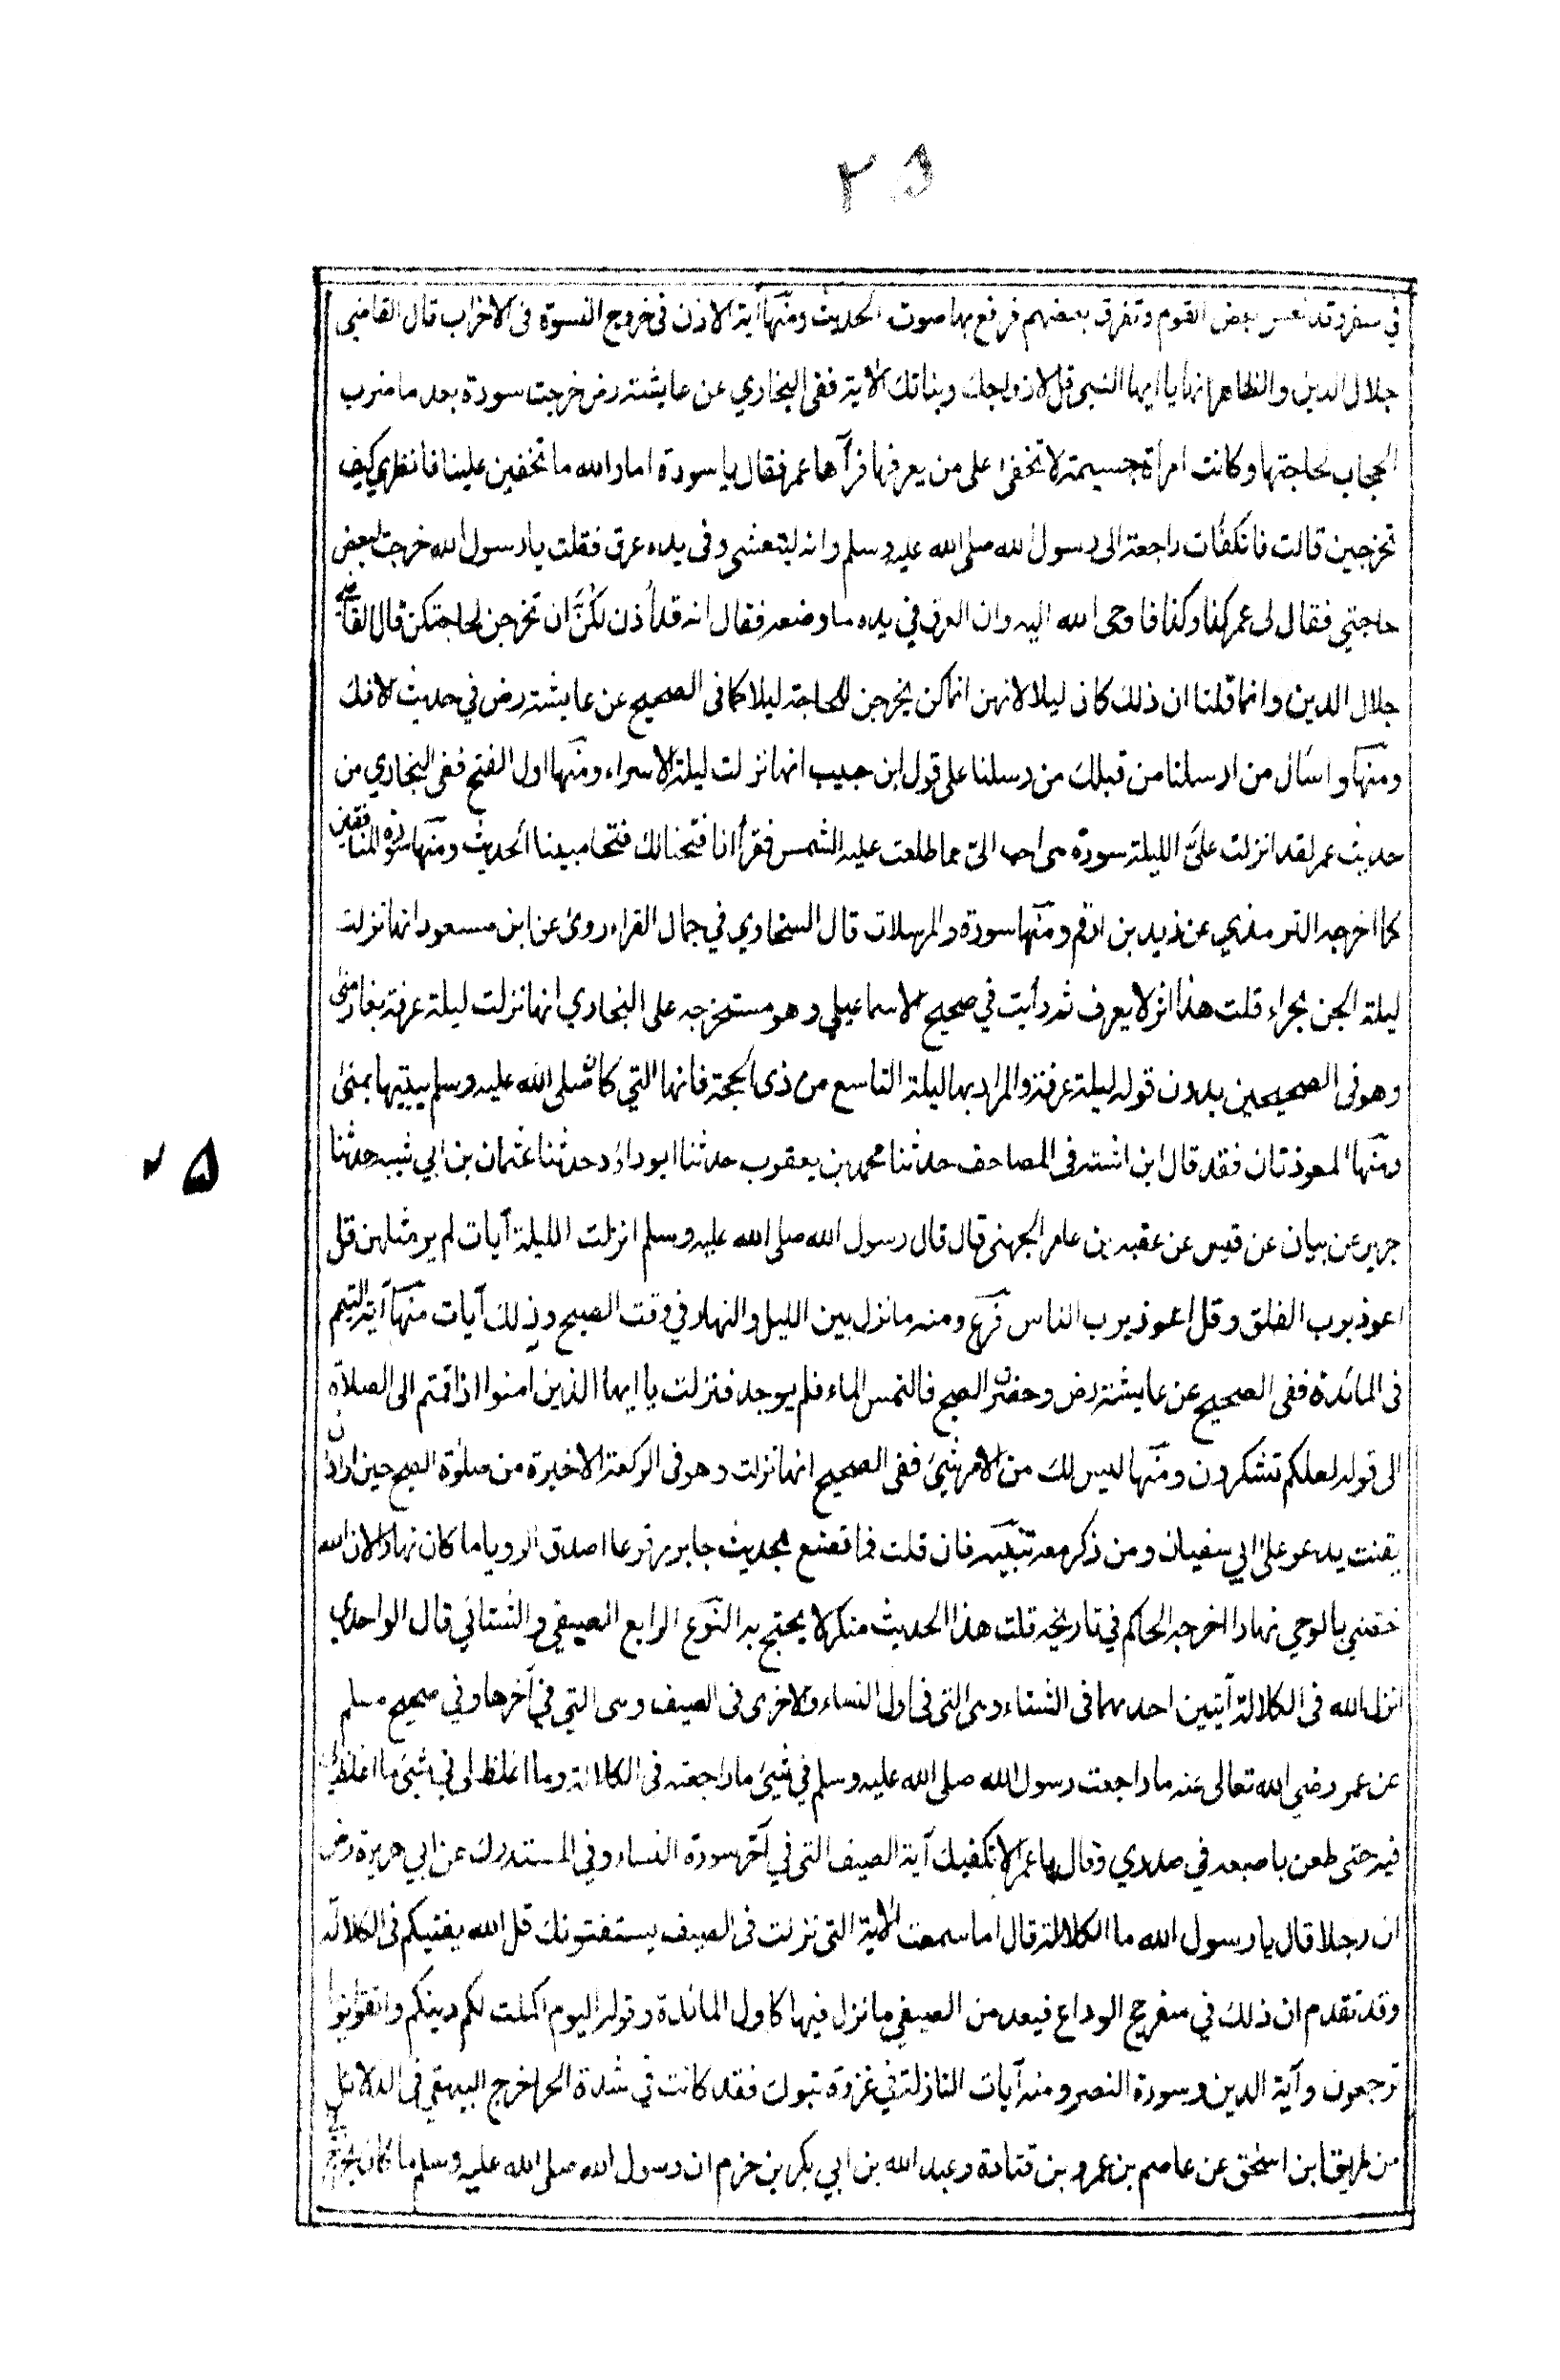 ٢٥
في سفر وقد نعس بعض القوم وتفرق بعضهم فرفع بها صوته الحديث ومنها آية الاذن في خروج النسوة في الاحزاب قال القاضي
جلال الدين والظاهر انها يا ايها النبي قل لازواجك وبناتك الآية ففي البخاري عن عايشة رض خرجت سودة بعد ما ضرب
الحجاب لحاجتها وكانت امرأة جسيمة لا تخفى على من يعرفها فرآها عمر فقال يا سودة اما والله ما تخفين علينا فانظري كيف
تخرجين قالت فانكفأت راجعة الى رسول الله صلى الله عليه وسلم وانه ليتعشى وفي يده عرق فقلت يا رسول الله خرجت لبعض
حاجتي فقال لي عمر كذا وكذا فاوحى الله اليه وان العرق في يده ما وضعه فقال انه قد أذن لكنّ ان تخرجن لحاجتكن قال القاضي
جلال الدين وانما قلنا ان ذلك كان ليلا لانهن انما كن يخرجن للحاجة ليلا كما في الصحيح عن عايشة رض في حديث الافك
ومنها واسأل من ارسلنا من قبلك من رسلنا على قول ابن حبيب انها نزلت ليلة الاسراء ومنها اول الفتح ففي البخاري من
حديث عمر لقد انزلت عليّ الليلة سورة هي احب اليّ مما طلعت عليه الشمس فقرأ انا فتحنا لك فتحا مبينا الحديث ومنها سورة المنافقين
كما اخرجه الترمذي عن زيد بن ارقم ومنها سورة والمرسلات قال السخاوي في جمال القراء روى عن ابن مسعود انها نزلت
ليلة الجن بحراء قلت هذا اثر لا يعرف ثم رأيت في صحيح الاسماعيلي وهو مستخرجه على البخاري انها نزلت ليلة عرفة بغار منى
وهو في الصحيحين بدون قوله ليلة عرفة والمراد بها ليلة التاسع من ذي الحجة فانها التي كان صلى الله عليه وسلم يبيتها بمنى
ومنها المعوذتان فقد قال ابن اشتة في المصاحف حدثنا محمد بن يعقوب حدثنا ابو داود حدثنا عثمان بن ابي شيبة حدثنا
جرير عن بيان عن قيس عن عقبه بن عامر الجهني قال قال رسول الله صلى الله عليه وسلم انزلت الليلة آيات لم ير مثلهن قل
اعوذ برب الفلق وقل اعوذ برب الناس فرع ومنه ما نزل بين الليل والنهار في وقت الصبح وذلك آيات منها آية التيمم
في المائدة ففي الصحيح عن عايشة رض وحضرت الصبح فالتمس الماء فلم يوجد فنزلت يا ايها الذين امنوا اذا قمتم الى الصلاة
الى قوله لعلكم تشكرون ومنها ليس لك من الامر شيئ ففي الصحيح انها نزلت وهو في الركعة الاخيرة من صلوة الصبح حين اراد ان
يقنت يدعو على ابي سفيان ومن ذكر معه تنبيه فان قلت فما تصنع بحديث جابر مرفوعا اصدق الرويا ما كان نهارا لان الله
خصني بالوحي نهارا اخرجه الحاكم في تاريخه قلت هذا الحديث منكر لا يحتج به النوع الرابع الصيفي والشتائي قال الواحدي
انزل الله في الكلالة آيتين احدهما في الشتاء وهي التي في اول النساء والاخرى في الصيف وهي التي في آخرها وفي صحيح مسلم
عن عمر رضي الله تعالى عنه ما راجعت رسول الله صلى الله عليه وسلم في شيئ ما راجعته في الكلالة وما اغلظ لي في شيئ ما اغلظ لي
فيه حتى طعن باصبعه في صدري وقال يا عمر الا تكفيك آية الصيف التي في آخر سورة النساء وفي المستدرك عن ابي هريرة رض
ان رجلا قال يا رسول الله ما الكلالة قال اما سمعت الآية التي نزلت في الصيف يستفتونك قل الله يفتيكم في الكلالة
وقد تقدم ان ذلك في سفر حج الوداع فيعد من الصيفي ما نزل فيها كاول المائدة وقوله اليوم اكملت لكم دينكم واتقوا يوما
ترجعون وآية الدين وسورة النصر ومنه آيات النازلة في غزوة تبوك فقد كانت في شدة الحر اخرج البيهقي في الدلائل
من طريق ابن اسحق عن عاصم بن عمرو بن قتادة وعبد الله بن ابي بكر بن حزم ان رسول الله صلى الله عليه وسلم ما كان يخرج
٢٥